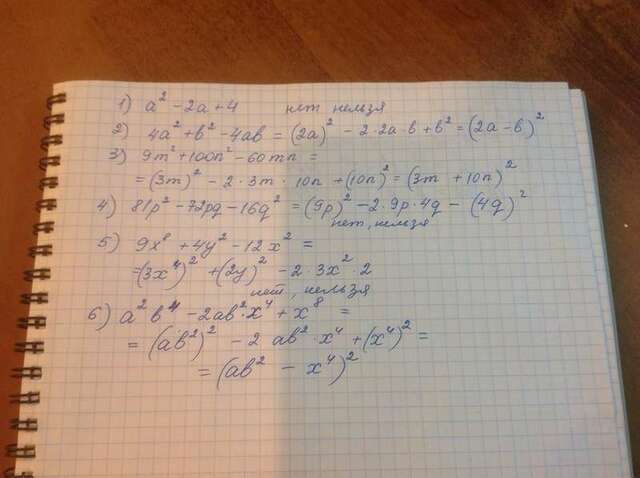 1) a² - 2a + 4 нет нельзя
2) 4a² + b² - 4ab = (2a)² - 2·2a·b + b² = (2a - b)²
3) 9m² + 100n² - 60mn =
= (3m)² - 2·3m·10n + (10n)² = (3m + 10n)²
4) 81p² - 72pq - 16q² = (9p)² - 2·9p·4q - (4q)²
нет, нельзя
5) 9x⁸ + 4y² - 12x² =
= (3x⁴)² + (2y)² - 2·3x²·2
нет, нельзя
6) a²b⁴ - 2ab²·x⁴ + x⁸ =
= (ab²)² - 2 ab²·x⁴ + (x⁴)² =
= (ab² - x⁴)²